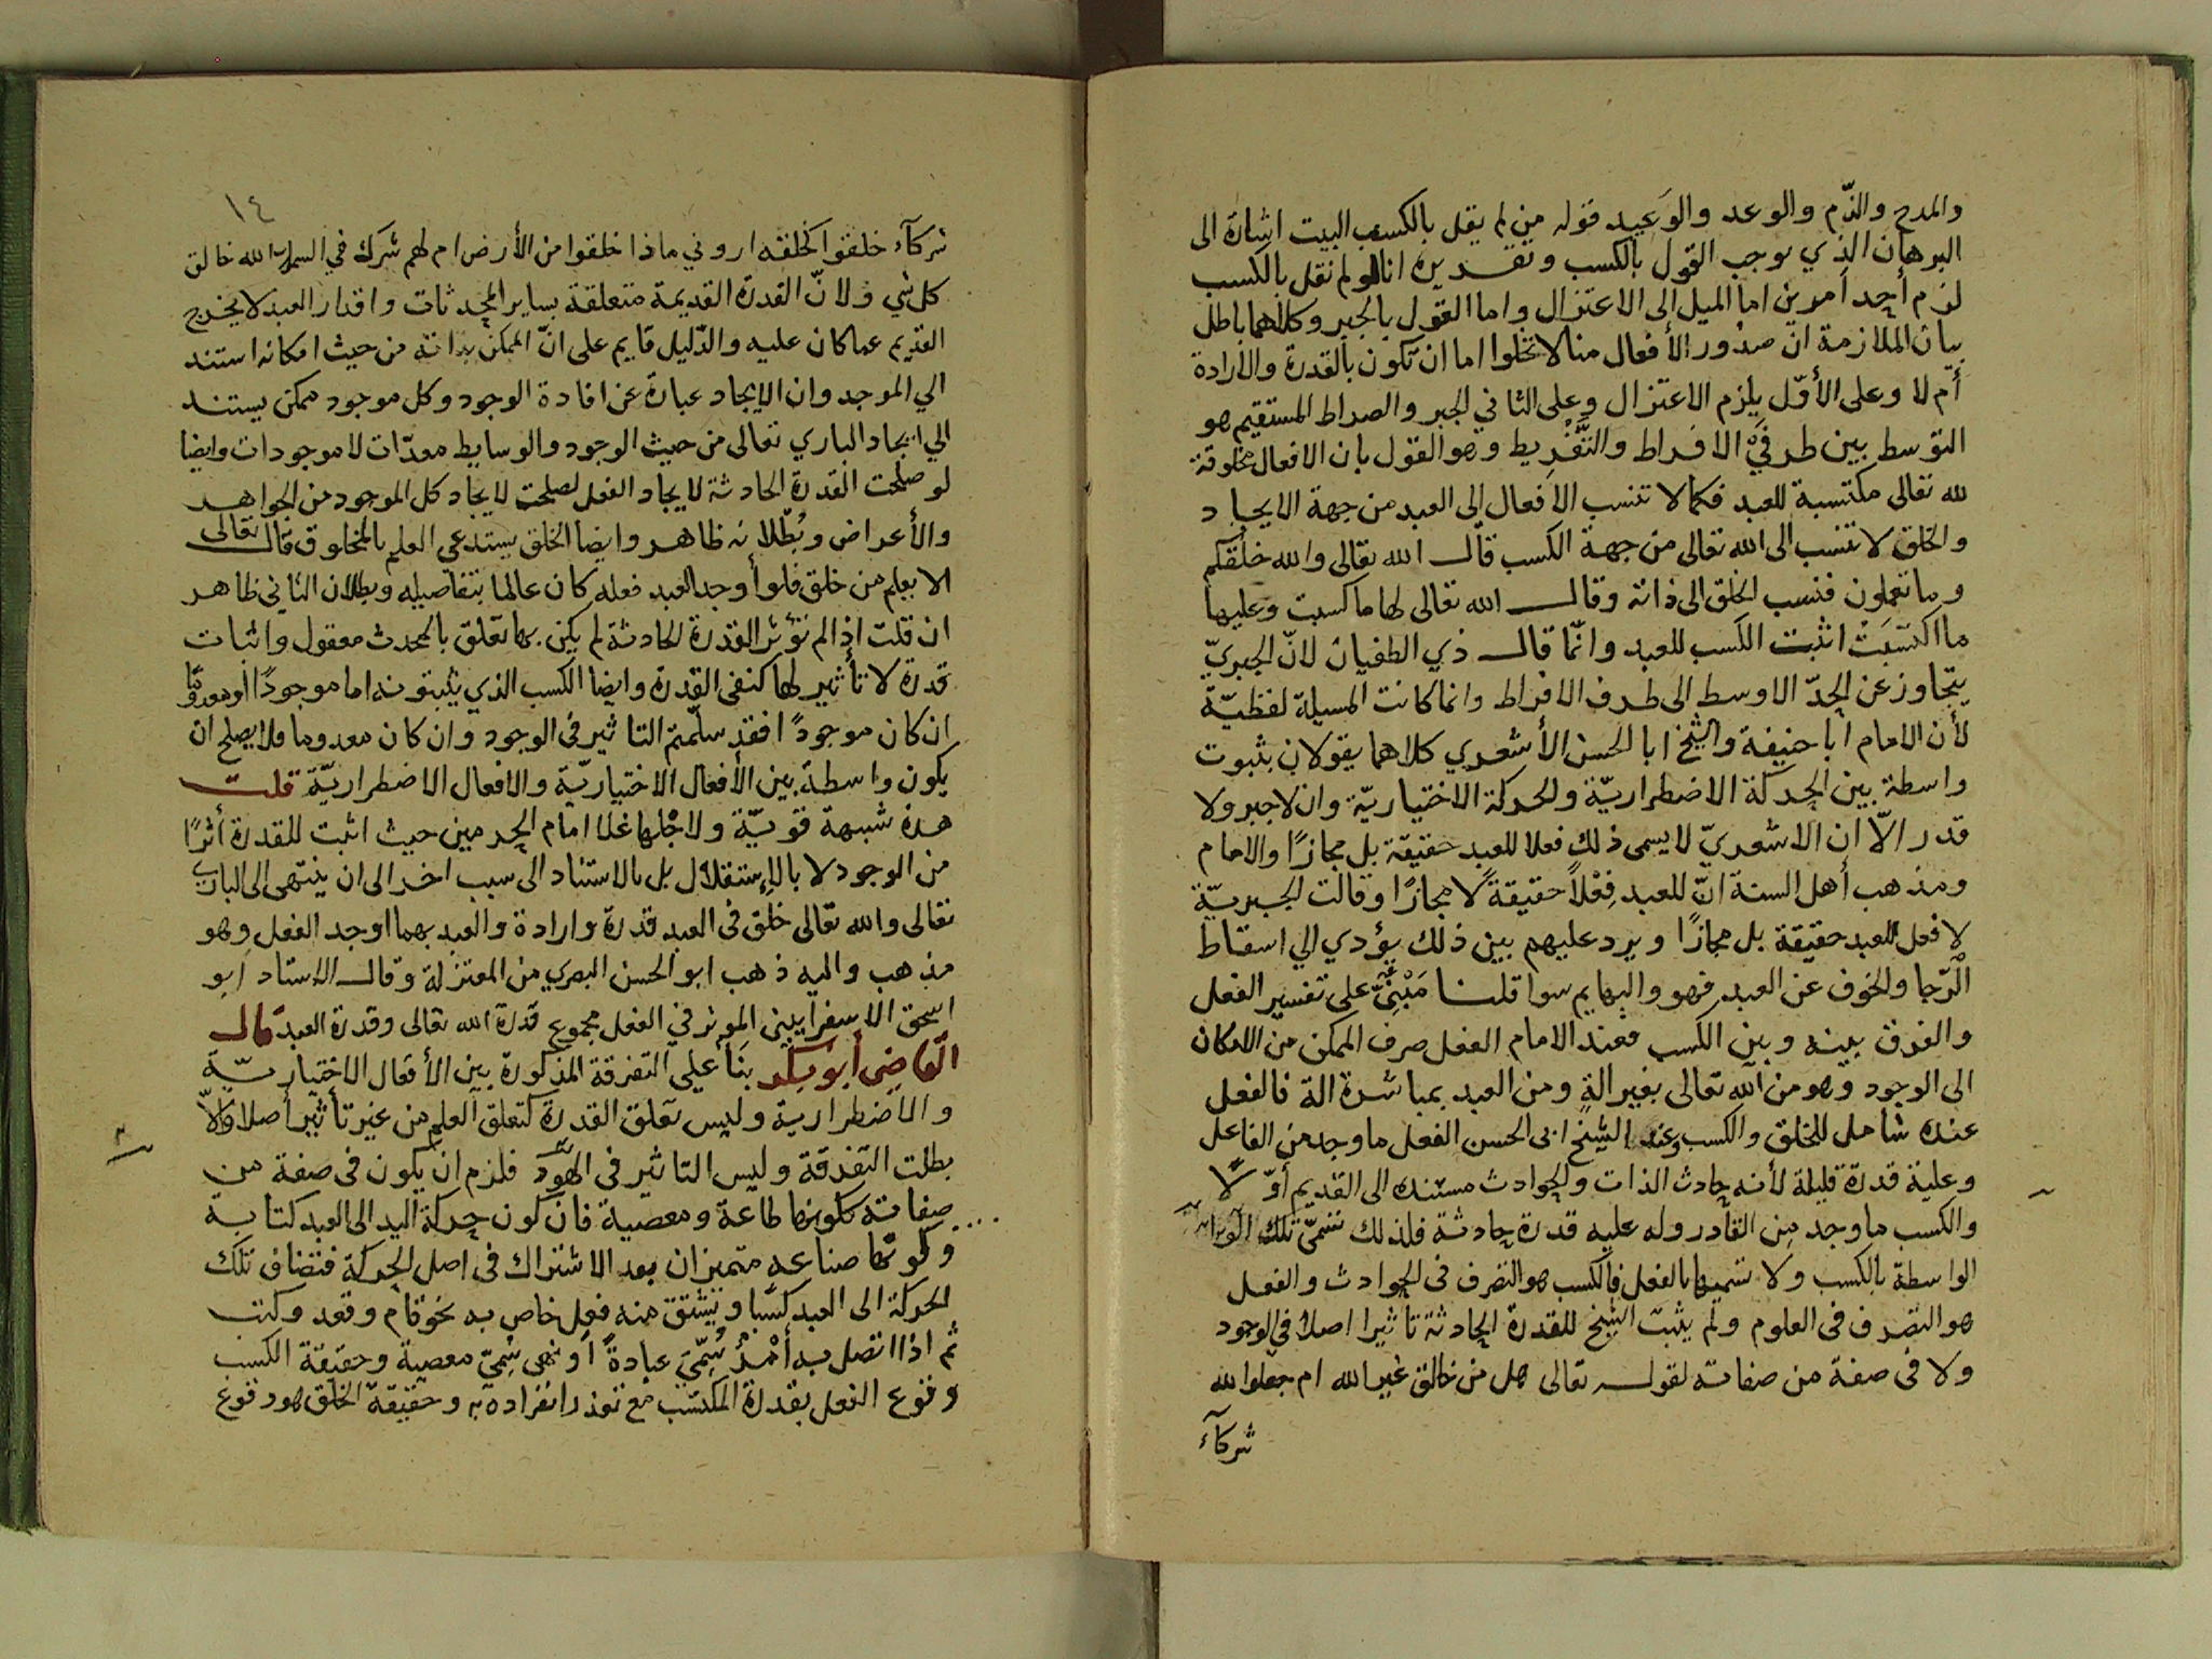 والمدح والذّم والوعد والوَعيد قوله من لم يقل بالكسب البيت اشارة الى
البرهان الذي يوجب القول بالكسب وتقديره انا لو لم نقل بالكسب
لزم أحد أمرين اما الميل الى الاعتزال واما القول بالجبر وكلاهما باطل
بيان الملازمة انّ صدُور الأفعال منا لا تخلوا اما ان تكون بالقدرة والارادة
أم لا وعلى الأوّل يلزم الاعتزال وعلى الثاني الجبر والصراط المستقيم هو
التوسط بين طرفي الافراط والتَّفْرِيط وهو القول بان الافعال مخلوقة
لله تعالى مكتسبة للعبد فكما لا تنسب الافعال الى العبد من جهة الايجاد
والخلق لا تنسب الى الله تعالى من جهة الكسب قال الله تعالى والله خلقكم
وما تعملون فنسب الخلق الى ذاته وقال الله تعالى لها ما كسبت وعليها
ما اكتسَبَتْ اثبت الكسب للعبد وانّما قال ذي الطغيان لانّ الجبريّ
يتجاوز عن الحدّ الاوسط الى طرف الافراط وانما كانت المسيلة لفظيّة
لأن الامام أبا حنيفة والشيخ ابا الحسن الأشعري كلاهما يقولان بثبوت
واسطة بين الحركة الاضطراريّة والحركة الاختياريّة وان لا جبر ولا
قدر الّا ان الاشعريّ لا يسمى ذلك فعلا للعبد حقيقة بل مجازًا والامام
ومذهب أهل السنة انّ للعبد فِعْلاً حقيقةً لا مجازًا وقالت الجبريّة
لا فعل للعبد حقيقة بل مجازًا ويرد عليهم بين ذلك يؤدي الي اسقاط
الْرّجا والخوف عن العبد فهو والبهايم سوا قلنا مَبْنِيٌّ على تفسير الفعل
والفرق بينه وبين الكسب فعند الامام الفعل صرف الممكن من الامكان
الى الوجود وهو من الله تعالى بغير الة ومن العبد بمباشرة الة فالفعل
عنده شامل للخلق والكسب وعند الشيخ ابى الحسن الفعل ما وجد من الفاعل
وعليه قدرة قليلة لأنه حادث الذات والحوادث مستنده الى القديم أوّلًا
والكسب ما وجد من القادر وله عليه قدرة حادثة فلذلك نسمّي تلك
الواسطة بالكسب ولا نسميها بالفعل فالكسب هو التصرف فى الحوادث والفعل
هو التصرف فى العلوم ولم يثبت الشيخ للقدرة الحادثة تاثيرا اصلا في الوجود
ولا فى صفة من صفاته لقوله تعالى هل من خالق غير الله ام جعلوا لله
شركآء
١٤
شركآء خلقوا كخلقه اروني ماذا خلقوا من الأرض ام لهم شرك في السموات الله خالق
كل شي ولانّ القدرة القديمة متعلقة بساير المحدثات واقدار العبد لا يخرج
القديم عما كان عليه والدّليل قايم على انّ الممكن بذاته من حيث امكانه استند
الي الموجد وان الايجاد عبارة عن افادة الوجود وكل موجود ممكن يستند
الي ايجاد الباري تعالى من حيث الوجود والوسايط معدّات لا موجودات وايضا
لو صلحت القدرة الحادثة لايجاد الفعل لصلحت لايجاد كل الموجود من الجواهر
والأعراض وبُطلانه ظاهر وايضا الخلق يستدعي العلم بالمخلوق قال تعالى
الا يعلم من خلق فلو أوجد العبد فعله كان عالما بتفاصيله وبطلان الثاني ظاهر
ان قلت اذا لم تؤثر القدرة الحادثة لم يكن بها تعلق بالمحدث معقول واثبات
قدرة لا تأثير لها كنفى القدرة وايضا الكسب الذي يثبتونه اما موجودًا او معدومًا
ان كان موجودًا فقد سلّمتم التاثير فى الوجود وان كان معدوما فلا يصلح ان
يكون واسطة بين الأفعال الاختياريّة والافعال الاضطراريّة قلت
هذه شبهة قويّة ولاجلها غلا امام الحرمين حيث اثبت للقدرة أثرًا
من الوجود لا بالاستقلال بل بالاستناد الى سبب اخر الى ان ينتهى الى الباري
تعالى والله تعالى خلق فى العبد قدرة وارادة والعبد بهما اوجد الفعل وهو
مذهب واليه ذهب ابو الحسن البصري من المعتزلة وقال الاستاد ابو
اسحق الاسفرايينى الموثر في الفعل مجموع قدرة الله تعالى وقدرة العبد قال
القاضى أبو بكر بَنَا علي التفرقة المذكورة بين الأفعال الاختياريّة
والاضطرارية وليس تعلق القدرة كتعلق العلم من غير تأثير أصلا والّا
بطلت التفرقة وليس التاثير فى الوجود فلزم ان يكون فى صفة من
صفاته ككونها طاعة ومعصية فان كون حركة اليد الى العبد كتابة
وكونها صناعة متميزان بعد الاشتراك فى اصل الحركة فتضاف تلك
الحركة الى العبد كسبا ويشتق منه فعل خاص به نحو قام وقعد وكتب
ثم اذا اتصل به أمْرٌ سُمِّيَ عبادةً او نهى سُمِّيَ معصية وحقيقة الكسب
وقوع الفعل بقدرة المكتسب مع تعذر انفراده به وحقيقة الخلق هو وقوع